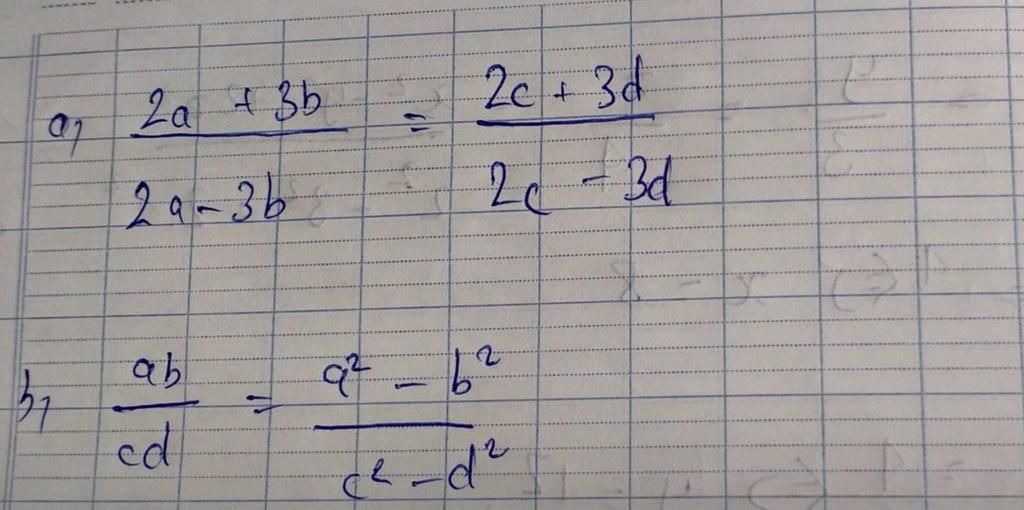 a, (2a + 3b)/(2a - 3b) = (2c + 3d)/(2c - 3d)
b, ab/cd = (a² - b²)/(c² - d²)